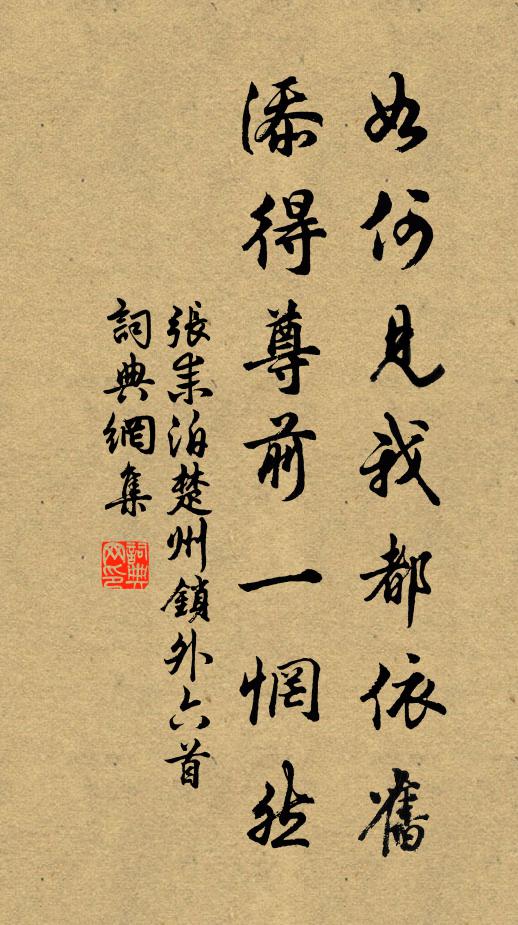 如何見我都依舊
添得尊前一惘然
張耒泊楚州鎖外六首
詞典網集
詞典網印